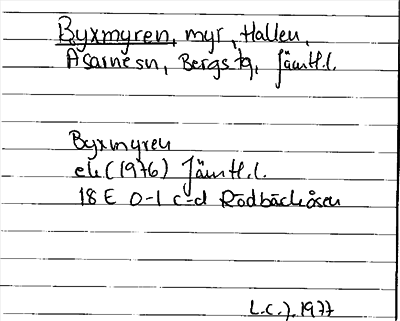 Byxmyren, myr, Hallen,
Åsarne sn, Bergs tg, Jämtl.l.
Byxmyren
ek (1976) Jämtl.l.
18 E 0-1 c-d Rödbäcksåsen
L.C.J. 1977